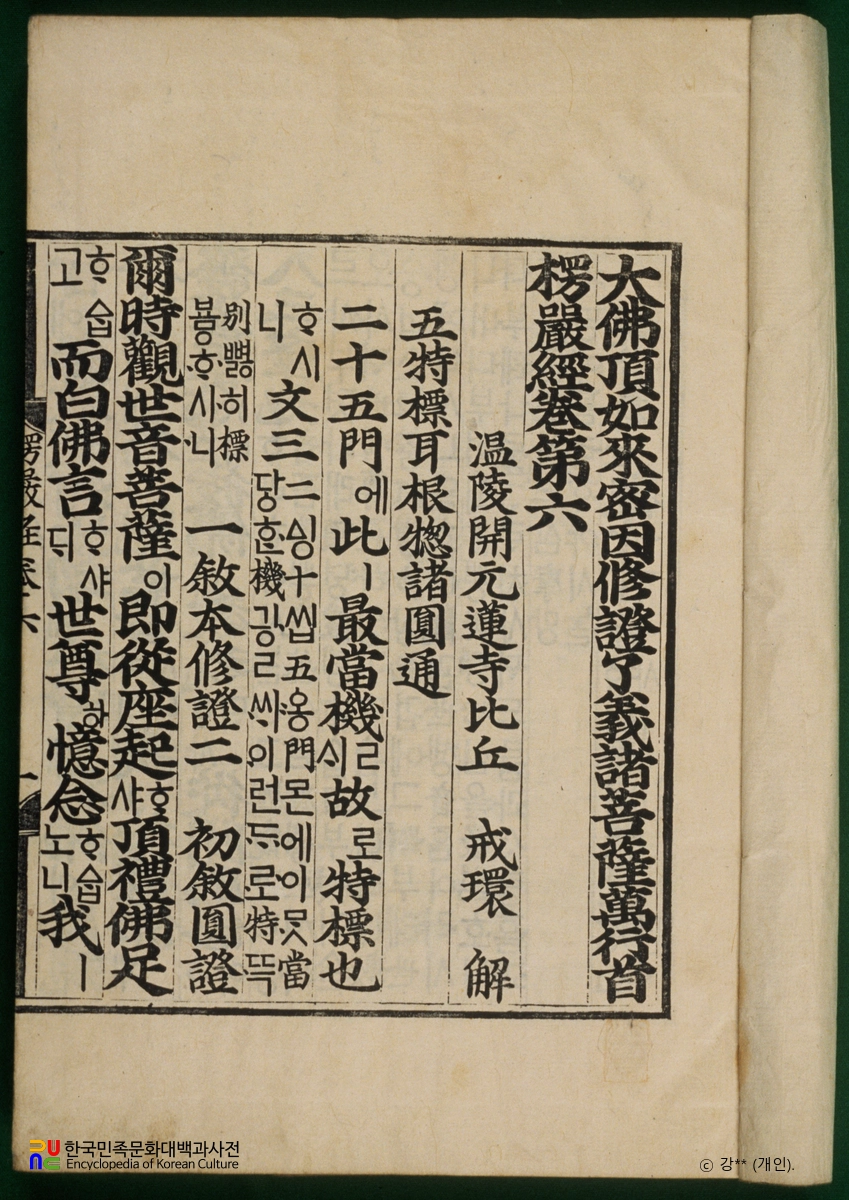 大佛頂如來密因修證了義諸菩薩萬行首
楞嚴經卷第六
温陵開元蓮寺比丘 戒環 解
五特標耳根惣諸圓通
二十五門에此ㅣ最當機ㄹ시故로特標也
ᄒᆞ시니文三二ᅀᅵᆼ十씹五ᅌᅩᆼ門몬에이ᄆᆞᆺ當당ᄒᆞᆫ機긩ㄹᄊᆡ이런ᄃᆞ로特뜩
別뼗히標ᄇᆞᇢᄒᆞ시니 一敘本修證二 初敘圓證
爾時觀世音菩薩이即從座起ᄒᆞ샤頂禮佛足
ᄒᆞᅀᆞᆸ고而白佛言ᄒᆞ샤ᄃᆡ世尊하憶念ᄒᆞᅀᆞᆸ노니我ㅣ
楞嚴經卷六 一
한국민족문화대백과사전
Encyclopedia of Korean Culture
ⓒ 강** (개인).